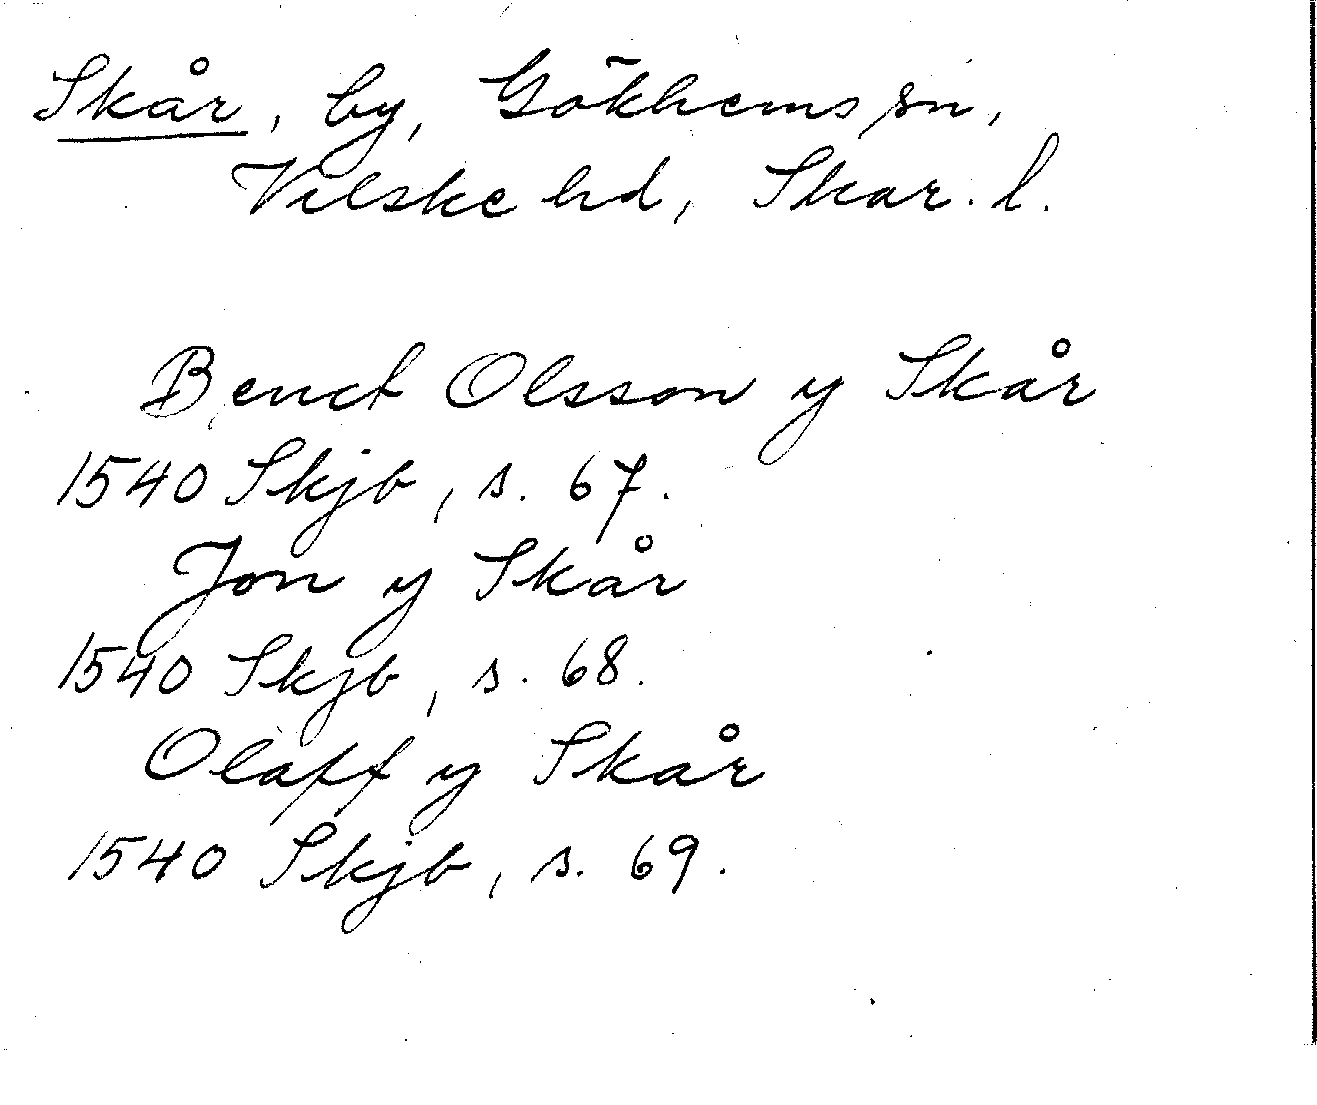 Skår, by, Gökhems sn,
Vilske hd, Skar. l.
Benct Olsson y Skår
1540 Skjb, s. 67.
Jon y Skår
1540 Skjb, s. 68.
Olaff y Skår
1540 Skjb, s. 69.